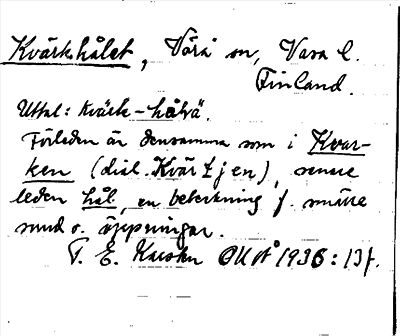 Kvärkhålet, Vörå sn, Vasa l.
Finland.
Uttal: kvärk-hålä.
Förleden är densamma som i Kvar-
ken (dial. Kvärtjen), senare
leden hål, en beteckning f. smärre
sund o. öppningar.
T. E. Karsten 1936: 13 f.